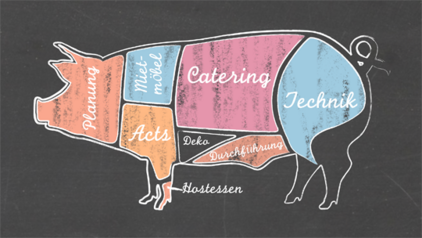 Planung
Miet-
möbel
Catering
Technik
Acts
Deko
Durchführung
Hostessen